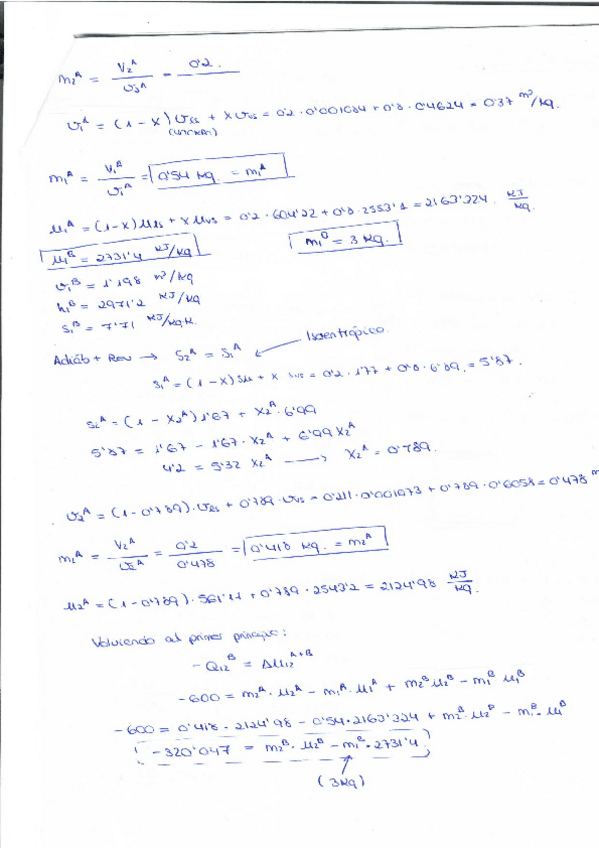 m₂ᴬ = V₂ᴬ / υ₂ᴬ = 0'2 /
υ₁ᴬ = (1 - x) υₗₛ + x υᵥₛ = 0'2 · 0'001084 + 0'8 · 0'4624 = 0'37 m³/kg.
m₁ᴬ = V₁ᴬ / υ₁ᴬ = 0'54 kg. = m₁ᴬ
u₁ᴬ = (1-x) uₗₛ + x uᵥₛ = 0'2 · 604'22 + 0'8 · 2553'1 = 2163'324 KJ/kg.
u₁ᴮ = 2731'4 KJ/kg m₁ᴮ = 3 kg.
υ₁ᴮ = 1'198 m³/kg
h₁ᴮ = 2971'2 KJ/kg
s₁ᴮ = 7'71 KJ/kgK.
Adiáb + Rev → s₂ᴬ = s₁ᴬ ← Isoentrópico.
s₁ᴬ = (1-x) sₗₛ + x sᵥₛ = 0'2 · 1'77 + 0'8 · 6'89 = 5'87.
s₂ᴬ = (1 - x₂ᴬ) 1'67 + x₂ᴬ · 6'99
5'87 = 1'67 - 1'67 · x₂ᴬ + 6'99 x₂ᴬ
4'2 = 5'32 x₂ᴬ → x₂ᴬ = 0'789.
υ₂ᴬ = (1-0'789) · υₗₛ + 0'789 · υᵥₛ = 0'211 · 0'001073 + 0'789 · 0'6058 = 0'478 m
m₂ᴬ = V₂ᴬ / υ₂ᴬ = 0'2 / 0'478 = 0'418 kg. = m₂ᴬ
u₂ᴬ = (1-0'789) · 561'11 + 0'789 · 2543'2 = 2124'98 KJ/kg.
Volviendo al primer principio:
- Q₁₂ᴮ = Δu₁₂ᴬ⁺ᴮ
-600 = m₂ᴬ · u₂ᴬ - m₁ᴬ · u₁ᴬ + m₂ᴮ u₂ᴮ - m₁ᴮ u₁ᴮ
-600 = 0'418 · 2124'98 - 0'54 · 2163'324 + m₂ᴮ · u₂ᴮ - m₁ᴮ · u₁ᴮ
-320'047 = m₂ᴮ · u₂ᴮ - m₁ᴮ · 2731'4
(3kg)